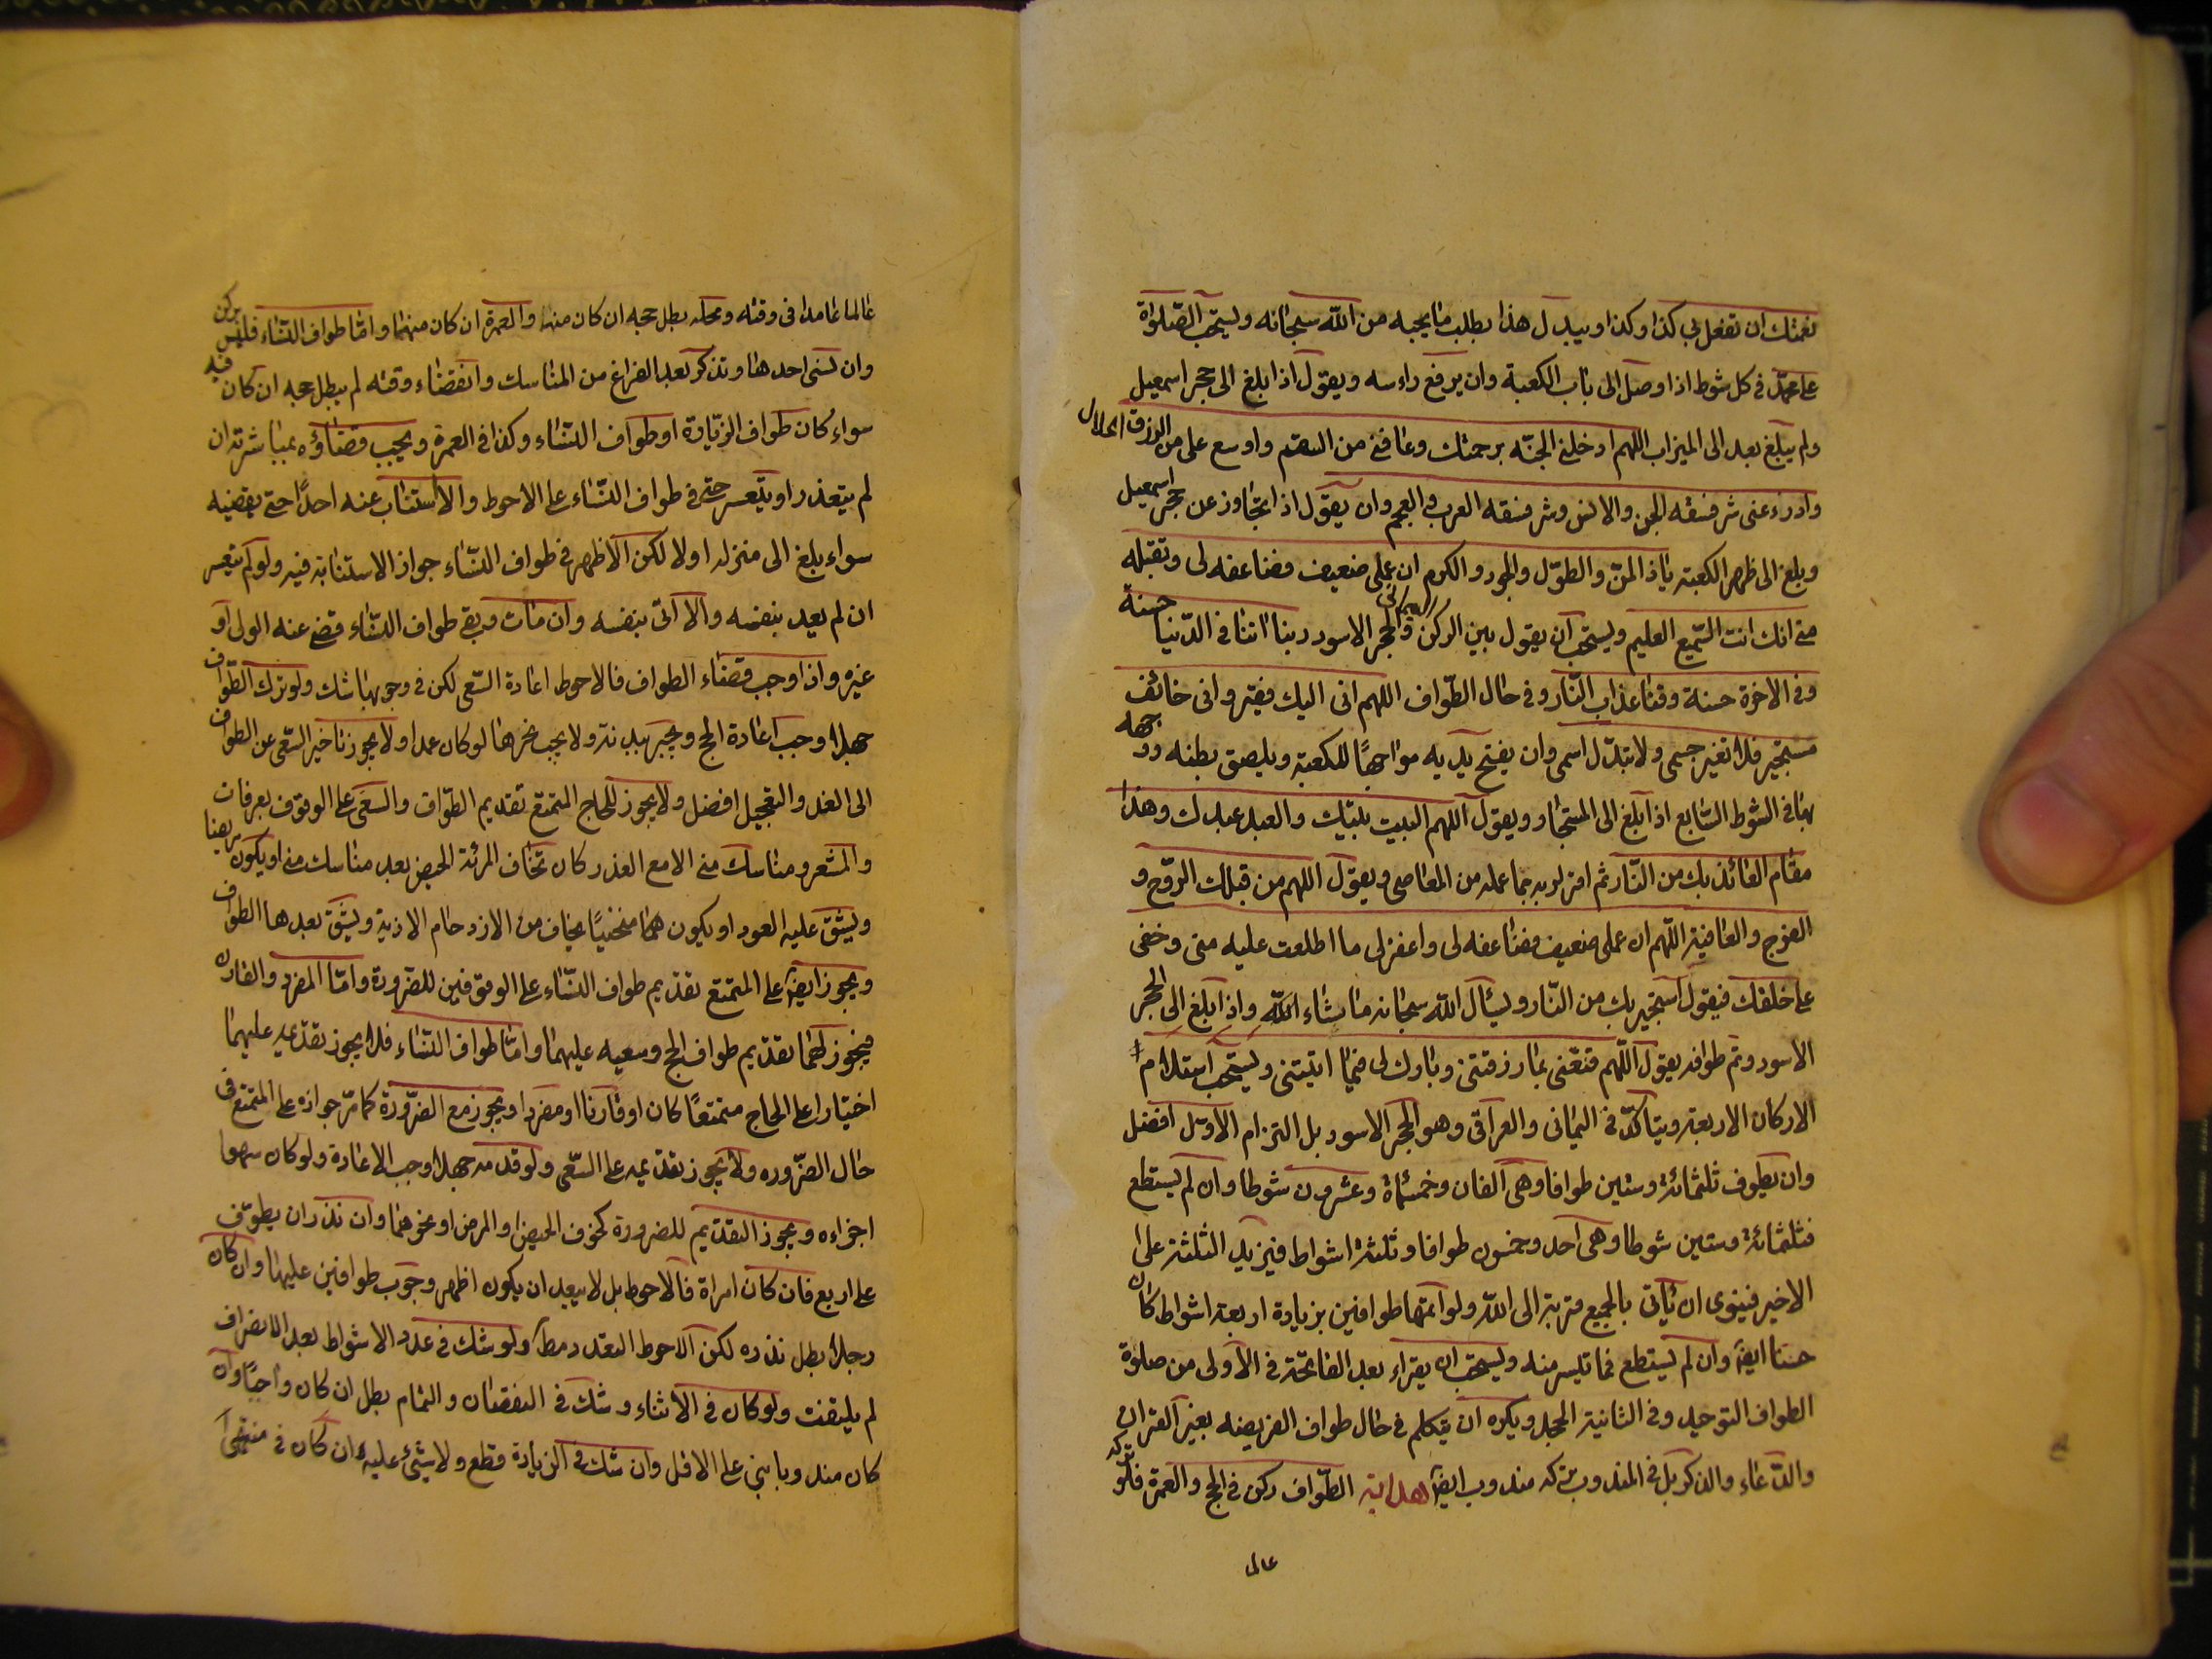 نعمتك ان تفعل بي كذا وكذا ويبدل هذا بطلب ما يحبه من الله سبحانه ويستحب الصلوة
على محمد في كل شوط اذا وصل الى باب الكعبة وان يرفع راسه ويقول اذا بلغ الى حجر اسمعيل
ولم يبلغ بعد الى الميزاب اللهم ادخلني الجنّة برحمتك وعافني من السقم واوسع علي من الرزق الحلال
وادرء عني شر فسقة الجن والانس وشر فسقة العرب والعجم وان يقول اذا تجاوز عن حجر اسمعيل
وبلغ الى ظهر الكعبة يا ذا المنّ والطّول والجود والكرم ان عملي ضعيف فضاعفه لي وتقبله
مني انك انت السّميع العليم ويستحب ان يقول بين الركن اليماني والحجر الاسود ربنا اتنا في الدّنيا حسنة
وفي الاخرة حسنة وقنا عذاب النّار وفي حال الطّواف اللهم اني اليك فقير واني خائف
مستجير فلا تغير جسمي ولا تبدّل اسمي وان يفتح يديه مواجهًا للكعبة ويلصق بطنه ووجهه
بها في الشوط السّابع اذا بلغ الى المستجار ويقول اللهم البيت بيتك والعبد عبدك وهذا
مقام العائذ بك من النّار ثم اقر لربه بما عمله من المعاصي ويقول اللهم من قبلك الرّوح و
الفرج والعافية اللّهم ان عملي ضعيف فضاعفه لي واغفر لي ما اطلعت عليه مني وخفي
على خلقك فيقول استجير بك من النّار ويسئال الله سبحانه ما شاء الله واذا بلغ الى الحجر
الاسود وتم طوافه يقول اللّهم قنّعني بما رزقتني وبارك لي فيما اتيتني ويستحب استلام
الاركان الاربعة ويتاكّد في اليماني والعراقي وهو الحجر الاسود بل التزام الاوّل افضل
وان يطوف ثلثمائة وستين طوافا وهي الفان وخمسمائة وعشرون شوطا وان لم يستطع
فثلثمائة وستين شوطا وهي احد وخمسون طوافا وثلثة اشواط فيزيد الثلثة على
الاخير فينوى ان يأتي بالجميع قربة الى الله ولو اتمها طوافين بزيادة اربعة اشواط كان
حسنا ايضا وان لم يستطع فما تيسر منه ويستحب ان يقراء بعد الفاتحة في الاولى من صلوة
الطواف التوحيد وفي الثانية الجحد ويكره ان يتكلم في حال طواف الفريضه بغير القران
والدّعاء والذكر بل في المندوب تركه مندوب ايضا هداية الطّواف ركن في الحج والعمرة فلو تركه
عالما
عالما عامدا في وقته ومحله بطل حجه ان كان منه والعمرة ان كان منهما واما طواف النّساء فليس بركن
وان نسى احدهما وتذكر بعد الفراغ من المناسك وانقضاء وقته لم يبطل حجه ان كان فيه
سواء كان طواف الزّيارة او طواف النّساء وكذا في العمرة ويجب قضاؤه بمباشرته ان
لم يتعذر او يتّعسر حتى في طواف النّساء على الاحوط والا استناب عنه احدًا حتى يقضيه
سواء بلغ الى منزله اولا لكن الاظهر في طواف النّساء جواز الاستنابة فيه ولو لم يتعسر
ان لم يعد بنفسه والا اتى بنفسه وان مات وبقى طواف النّساء قضى عنه الولى او
غيره واذا وجب قضاء الطواف فالاحوط اعادة السّعى لكن في وجوبها شك ولو ترك الطّواف
جهلا وجب اعادة الحج ويجبر ببدنة ولا يجب نحرها لو كان عمدا ولا يجوز تاخير السّعى عن الطواف
الى الغد والتعجيل افضل ولا يجوز للحاج المتمتع تقديم الطّواف والسّعى على الوقوف بعرفات
والمشعر ومناسك منى الا مع العذر كان تخاف المرئة الحيض بعد مناسك منى او يكون مريضا
ويشق عليه العود او يكون هما منحنيًا يخاف من الازدحام الاذية ويشّق بعدها الطواف
ويجوز ايضا على المتمتع تقديم طواف النّساء على الوقوفين للضّرورة وامّا المفرد والقارن
فيجوز لهما تقديم طواف الحج وسعيه عليهما وامّا طواف النّساء فلا يجوز تقديمه عليهما
اختيارا على الحاج متمتعًا كان او قارنا او مفردا ويجوز مع الضّرورة كما مرّ جوازه على المتمتع في
حال الضّروره ولا يجوز تقديمه على السّعى ولو قدمه جهلا وجب الاعادة ولو كان سهوا
اجزاءه ويجوز التقديم للضرورة كخوف الحيض والمرض او نحوهما وان نذر ان يطوف
على اربع فان كان امراة فالاحوط بل لا يبعد ان يكون اظهر وجوب طوافين عليها وان كان
رجلا بطل نذره لكن الاحوط التعدد مط ولو شك في عدد الاشواط بعد الانصراف
لم يلتفت ولو كان في الاثناء وشك في النقصان والتمام بطل ان كان واجبًا وان
كان مندوبا بنى على الاقل وان شك في الزيادة قطع ولا شئ عليه ان كان في منتهى